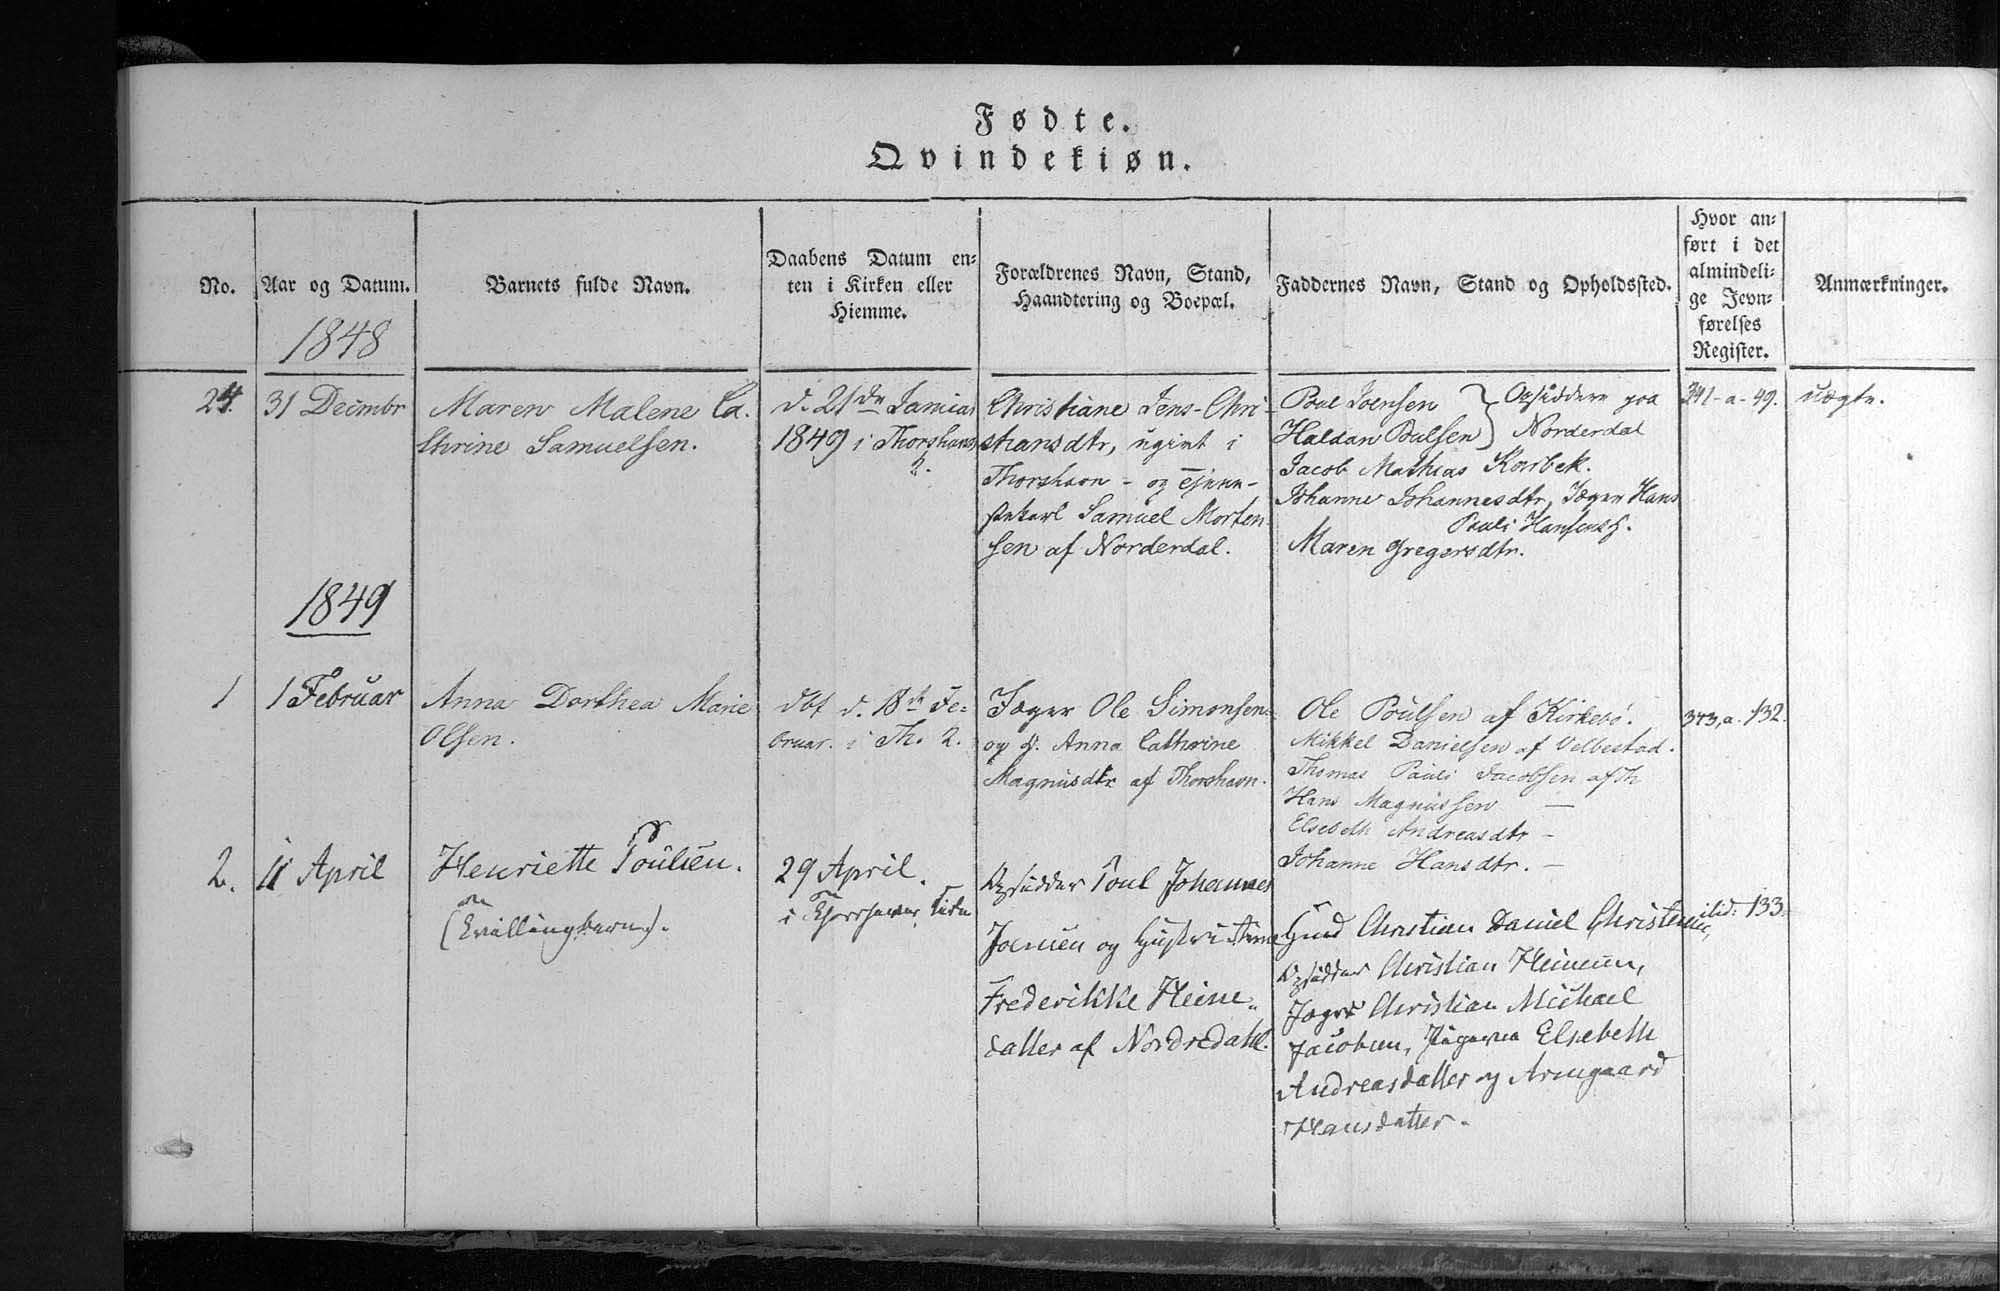 Fødte.
Qvindekiøn.
No.
Aar og Datum.
Barnets fulde Navn.
Daabens Datum en-
ten i Kirken eller
Hiemme.
Forældrenes Navn, Stand,
Haandtering og Boepæl.
Faddernes Navn, Stand og Opholdssted.
Hvor an-
ført i det
almindeli-
ge Jevn-
førelses
Register.
Anmærkninger.
1848
24.
31 Decembr
Maren Malene Ca-
thrine Samuelsen.
d. 21de Januar
1849 i Thorshavns
K.
Christiane Jens-Chri-
stiansdtr, ugivt i
Thorshavn - og Tjene-
stekarl Samuel Morten-
sen af Norderdal.
Poul Joensen } Opsiddere paa
Haldan Poulsen } Norderdal
Jacob Mathias
Johanne Johannesdtr, Jæger Hans
Pauli Hansens H.
Maren Gregersdtr.
341-a-49.
uægte.
1849
1
1 Februar
Anna Dorthea Marie
Olsen.
dbt d. 18de Fe-
bruar. i Th. K.
Jæger Ole Simonsen
og H. Anna Cathrine
Magnusdtr af Thorshavn.
Ole Poulsen af Kirkebø.
Mikkel Danielsen af Velbestad.
Thomas Pauli Jacobsen af Th
Hans Magnussen —
Elsebeth Andreasdtr -
Johanne Hansdtr. -
343, a. 132.
2.
11 April
Henriette Poulsen.
(Tvillingbarn).
29 April.
i Thorshavns Kirke
Opsidder Poul Johannes
Joensen og Hustru Anne
Frederikke Heine-
datter af Nordredahl.
Christian Daniel Christensen,
Opsidder Christian Heinesen,
Jæger Christian Michael
Jacobsen, Pigerne Elsebeth
Andreasdatter og Armgaard
Hansdatter.
ibid: 133.